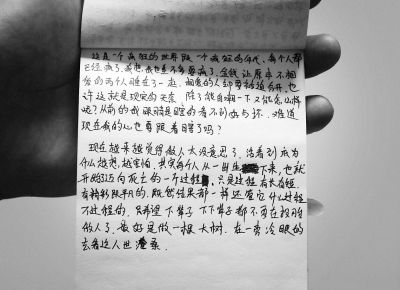 这是一个疯狂的世界跟一个疯狂的年代、每个人都
已经疯了、我想我也差不多要疯了。金钱让原本不相
爱的两个人睡在了一起、相爱的人却要接近分开、也
许这就是现实的无奈、除了能自嘲一下又能怎么样
呢？从前的我眼睛是瞎的看不到好与坏、难道
现在我的心也要跟着瞎了吗？
现在越来越觉得做人太没意思了、活着到底为
什么越想、越害怕、其实每个人从一出生 下来、也就
开始迈向死亡的一个过程、只是过程有长有短、
有精彩跟平凡的、既然结果都一样还管它什么过程
不过程的、只希望下辈子下下辈子都不要在投胎
做人了、最好是做一根大树、在一旁冷眼的
去看这人世沧桑.